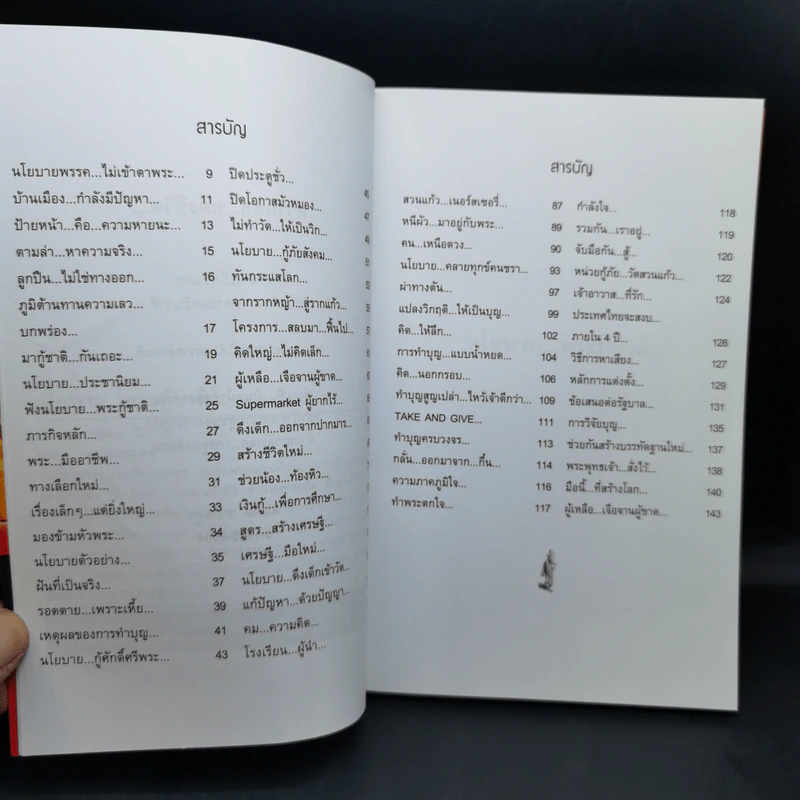 สารบัญ
นโยบายพรรค...ไม่เข้าตาพระ... 9
บ้านเมือง...กำลังมีปัญหา... 11
ป้ายหน้า...คือ...ความหายนะ... 13
ตามล่า...หาความจริง... 15
ลูกปืน...ไม่ใช่ทางออก... 16
ภูมิต้านทานความเลว...
บกพร่อง... 17
มากู้ชาติ...กันเถอะ... 19
นโยบาย...ประชานิยม... 21
ฟังนโยบาย...พระกู้ชาติ... 25
ภารกิจหลัก... 27
พระ...มืออาชีพ... 29
ทางเลือกใหม่... 31
เรื่องเล็กๆ...แต่ยิ่งใหญ่... 33
มองข้ามหัวพระ... 34
นโยบายตัวอย่าง... 35
ฝันที่เป็นจริง... 37
รอดตาย...เพราะเหี้ย... 39
เหตุผลของการทำบุญ... 41
นโยบาย...กู้ศักดิ์ศรีพระ... 43
ปิดประตูชั่ว...
ปิดโอกาสมัวหมอง...
ไม่ทำวัด...ให้เป็นวิก...
นโยบาย...กู้ภัยสังคม...
ทันกระแสโลก...
จากรากหญ้า...สู่รากแก้ว...
โครงการ...สลบมา...ฟื้นไป...
คิดใหญ่...ไม่คิดเล็ก...
ผู้เหลือ...เจือจานผู้ขาด...
Supermarket ผู้ยากไร้...
ดึงเด็ก...ออกจากปากมาร...
สร้างชีวิตใหม่...
ช่วยน้อง...ท้องหิว...
เงินกู้...เพื่อการศึกษา...
สูตร...สร้างเศรษฐี...
เศรษฐี...มือใหม่...
นโยบาย...ดึงเด็กเข้าวัด...
แก้ปัญหา...ด้วยปัญญา...
คม...ความคิด...
โรงเรียน...ผู้นำ...
สารบัญ
สวนแก้ว...เนอร์สเซอรี่... 87
หนีผัว...มาอยู่กับพระ... 89
คน...เหนือดวง... 90
นโยบาย...คลายทุกข์คนชรา... 93
ผ่าทางตัน... 97
แปลงวิกฤติ...ให้เป็นบุญ... 99
คิด...ให้ลึก... 102
การทำบุญ...แบบน้ำหยด... 104
คิด...นอกกรอบ... 106
ทำบุญสูญเปล่า...ไหว้เจ้าดีกว่า... 109
TAKE AND GIVE... 111
ทำบุญครบวงจร... 113
กลั่น...ออกมาจาก...กึ๋น... 114
ความภาคภูมิใจ... 116
ทำพระตกใจ... 117
กำลังใจ... 118
รวมกัน...เราอยู่... 119
จับมือกัน...สู้... 120
หน่วยกู้ภัย...วัดสวนแก้ว... 122
เจ้าอาวาส...ที่รัก... 124
ประเทศไทยจะสงบ...
ภายใน 4 ปี... 126
วิธีการหาเสียง... 128
หลักการแต่งตั้ง... 129
ข้อเสนอต่อรัฐบาล... 131
การวิจัยบุญ... 135
ช่วยกันสร้างบรรทัดฐานใหม่... 137
พระพุทธเจ้า...สั่งไว้... 138
มือนี้...ที่สร้างโลก... 140
ผู้เหลือ...เจือจานผู้ขาด... 143